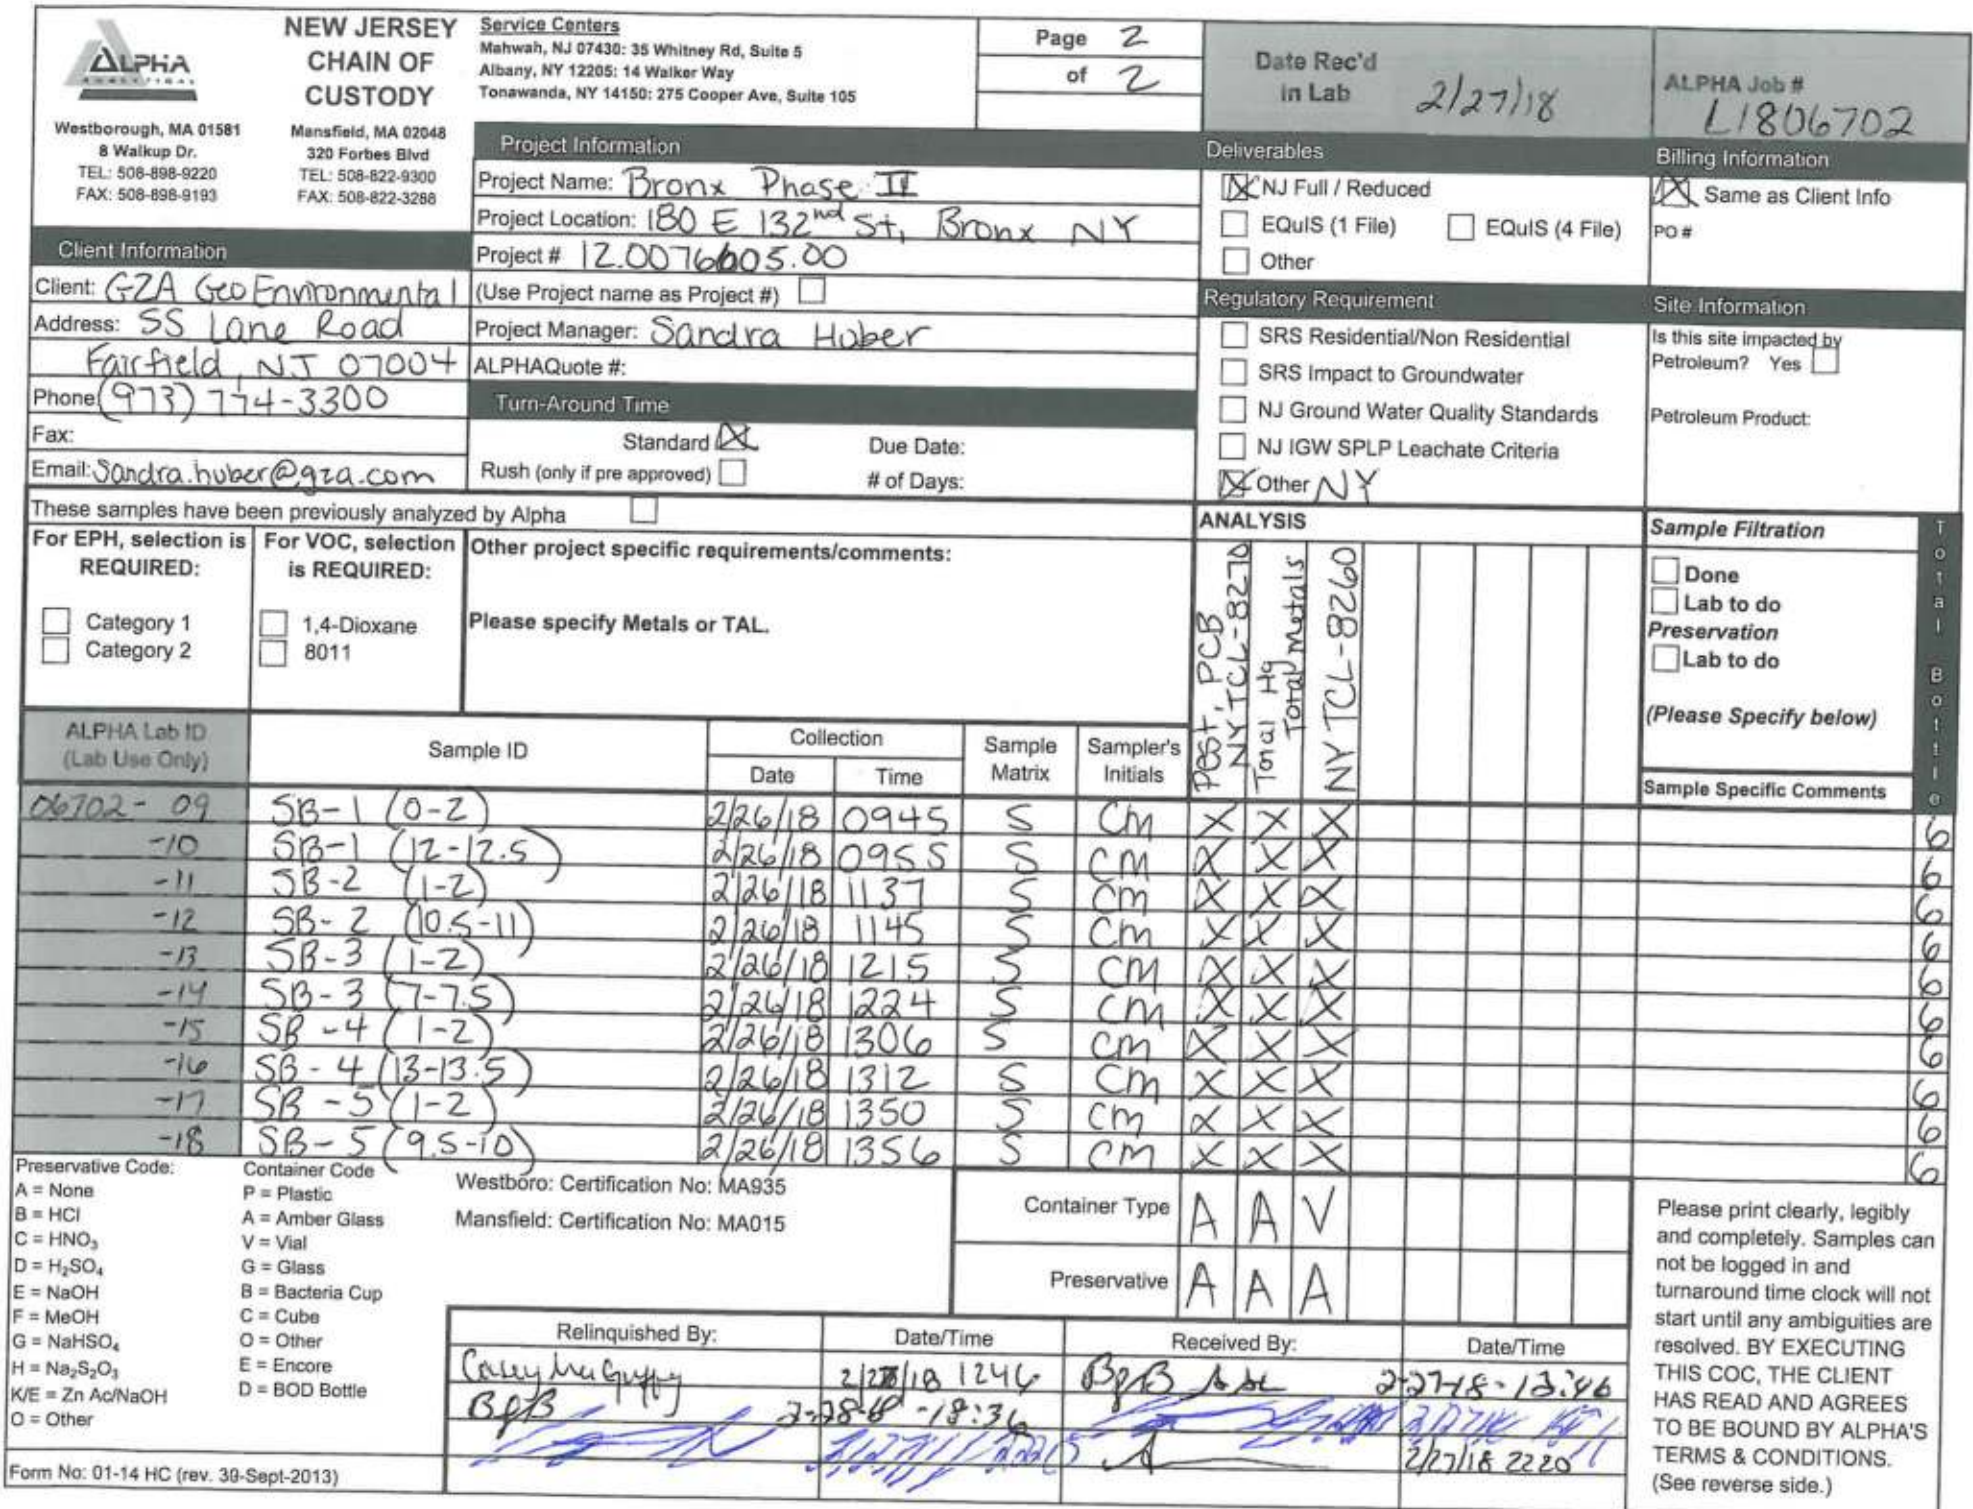 ALPHA
ANALYTICAL
Westborough, MA 01581
8 Walkup Dr.
TEL: 508-898-9220
FAX: 508-898-9193
NEW JERSEY
CHAIN OF
CUSTODY
Mansfield, MA 02048
320 Forbes Blvd
TEL: 508-822-9300
FAX: 508-822-3288
Service Centers
Mahwah, NJ 07430: 35 Whitney Rd, Suite 5
Albany, NY 12205: 14 Walker Way
Tonawanda, NY 14150: 275 Cooper Ave, Suite 105
Page 2
of 2
Date Rec'd
in Lab 2/27/18
ALPHA Job #
L1806702
Project Information
Project Name: Bronx Phase II
Project Location: 180 E 132nd St, Bronx NY
Project # 12.0076605.00
(Use Project name as Project #)
Project Manager: Sandra Huber
ALPHAQuote #:
Turn-Around Time
Standard X Due Date:
Rush (only if pre approved) # of Days:
Client Information
Client: GZA GeoEnvironmental
Address: 55 Lane Road
Fairfield, NJ 07004
Phone: (973) 774-3300
Fax:
Email: Sandra.huber@gza.com
Deliverables
X NJ Full / Reduced
EQuIS (1 File) EQuIS (4 File)
Other
Regulatory Requirement
SRS Residential/Non Residential
SRS Impact to Groundwater
NJ Ground Water Quality Standards
NJ IGW SPLP Leachate Criteria
X Other NY
Billing Information
X Same as Client Info
PO #
Site Information
Is this site impacted by
Petroleum? Yes
Petroleum Product:
These samples have been previously analyzed by Alpha
For EPH, selection is
REQUIRED:
Category 1
Category 2
For VOC, selection
is REQUIRED:
1,4-Dioxane
8011
Other project specific requirements/comments:
Please specify Metals or TAL.
ANALYSIS
Pest, PCB
NY TCL-8270
Total Hg
Total Metals
NY TCL-8260
Sample Filtration
Done
Lab to do
Preservation
Lab to do
(Please Specify below)
Total Bottle
ALPHA Lab ID
(Lab Use Only)
Sample ID
Collection
Date Time
Sample
Matrix
Sampler's
Initials
Sample Specific Comments
06702-09 SB-1 (0-2) 2/26/18 0945 S CM X X X 6
-10 SB-1 (12-12.5) 2/26/18 0955 S CM X X X 6
-11 SB-2 (1-2) 2/26/18 1137 S CM X X X 6
-12 SB-2 (10.5-11) 2/26/18 1145 S CM X X X 6
-13 SB-3 (1-2) 2/26/18 1215 S CM X X X 6
-14 SB-3 (7-7.5) 2/26/18 1224 S CM X X X 6
-15 SB-4 (1-2) 2/26/18 1306 S CM X X X 6
-16 SB-4 (13-13.5) 2/26/18 1312 S CM X X X 6
-17 SB-5 (1-2) 2/26/18 1350 S CM X X X 6
-18 SB-5 (9.5-10) 2/26/18 1356 S CM X X X 6
Preservative Code:
A = None
B = HCl
C = HNO3
D = H2SO4
E = NaOH
F = MeOH
G = NaHSO4
H = Na2S2O3
K/E = Zn Ac/NaOH
O = Other
Container Code
P = Plastic
A = Amber Glass
V = Vial
G = Glass
B = Bacteria Cup
C = Cube
O = Other
E = Encore
D = BOD Bottle
Westboro: Certification No: MA935
Mansfield: Certification No: MA015
Container Type A A V
Preservative A A A
Relinquished By: Date/Time Received By: Date/Time
Casey 1246 2-27-18-
2/27/18 2220
Please print clearly, legibly
and completely. Samples can
not be logged in and
turnaround time clock will not
start until any ambiguities are
resolved. BY EXECUTING
THIS COC, THE CLIENT
HAS READ AND AGREES
TO BE BOUND BY ALPHA'S
TERMS & CONDITIONS.
(See reverse side.)
Form No: 01-14 HC (rev. 30-Sept-2013)